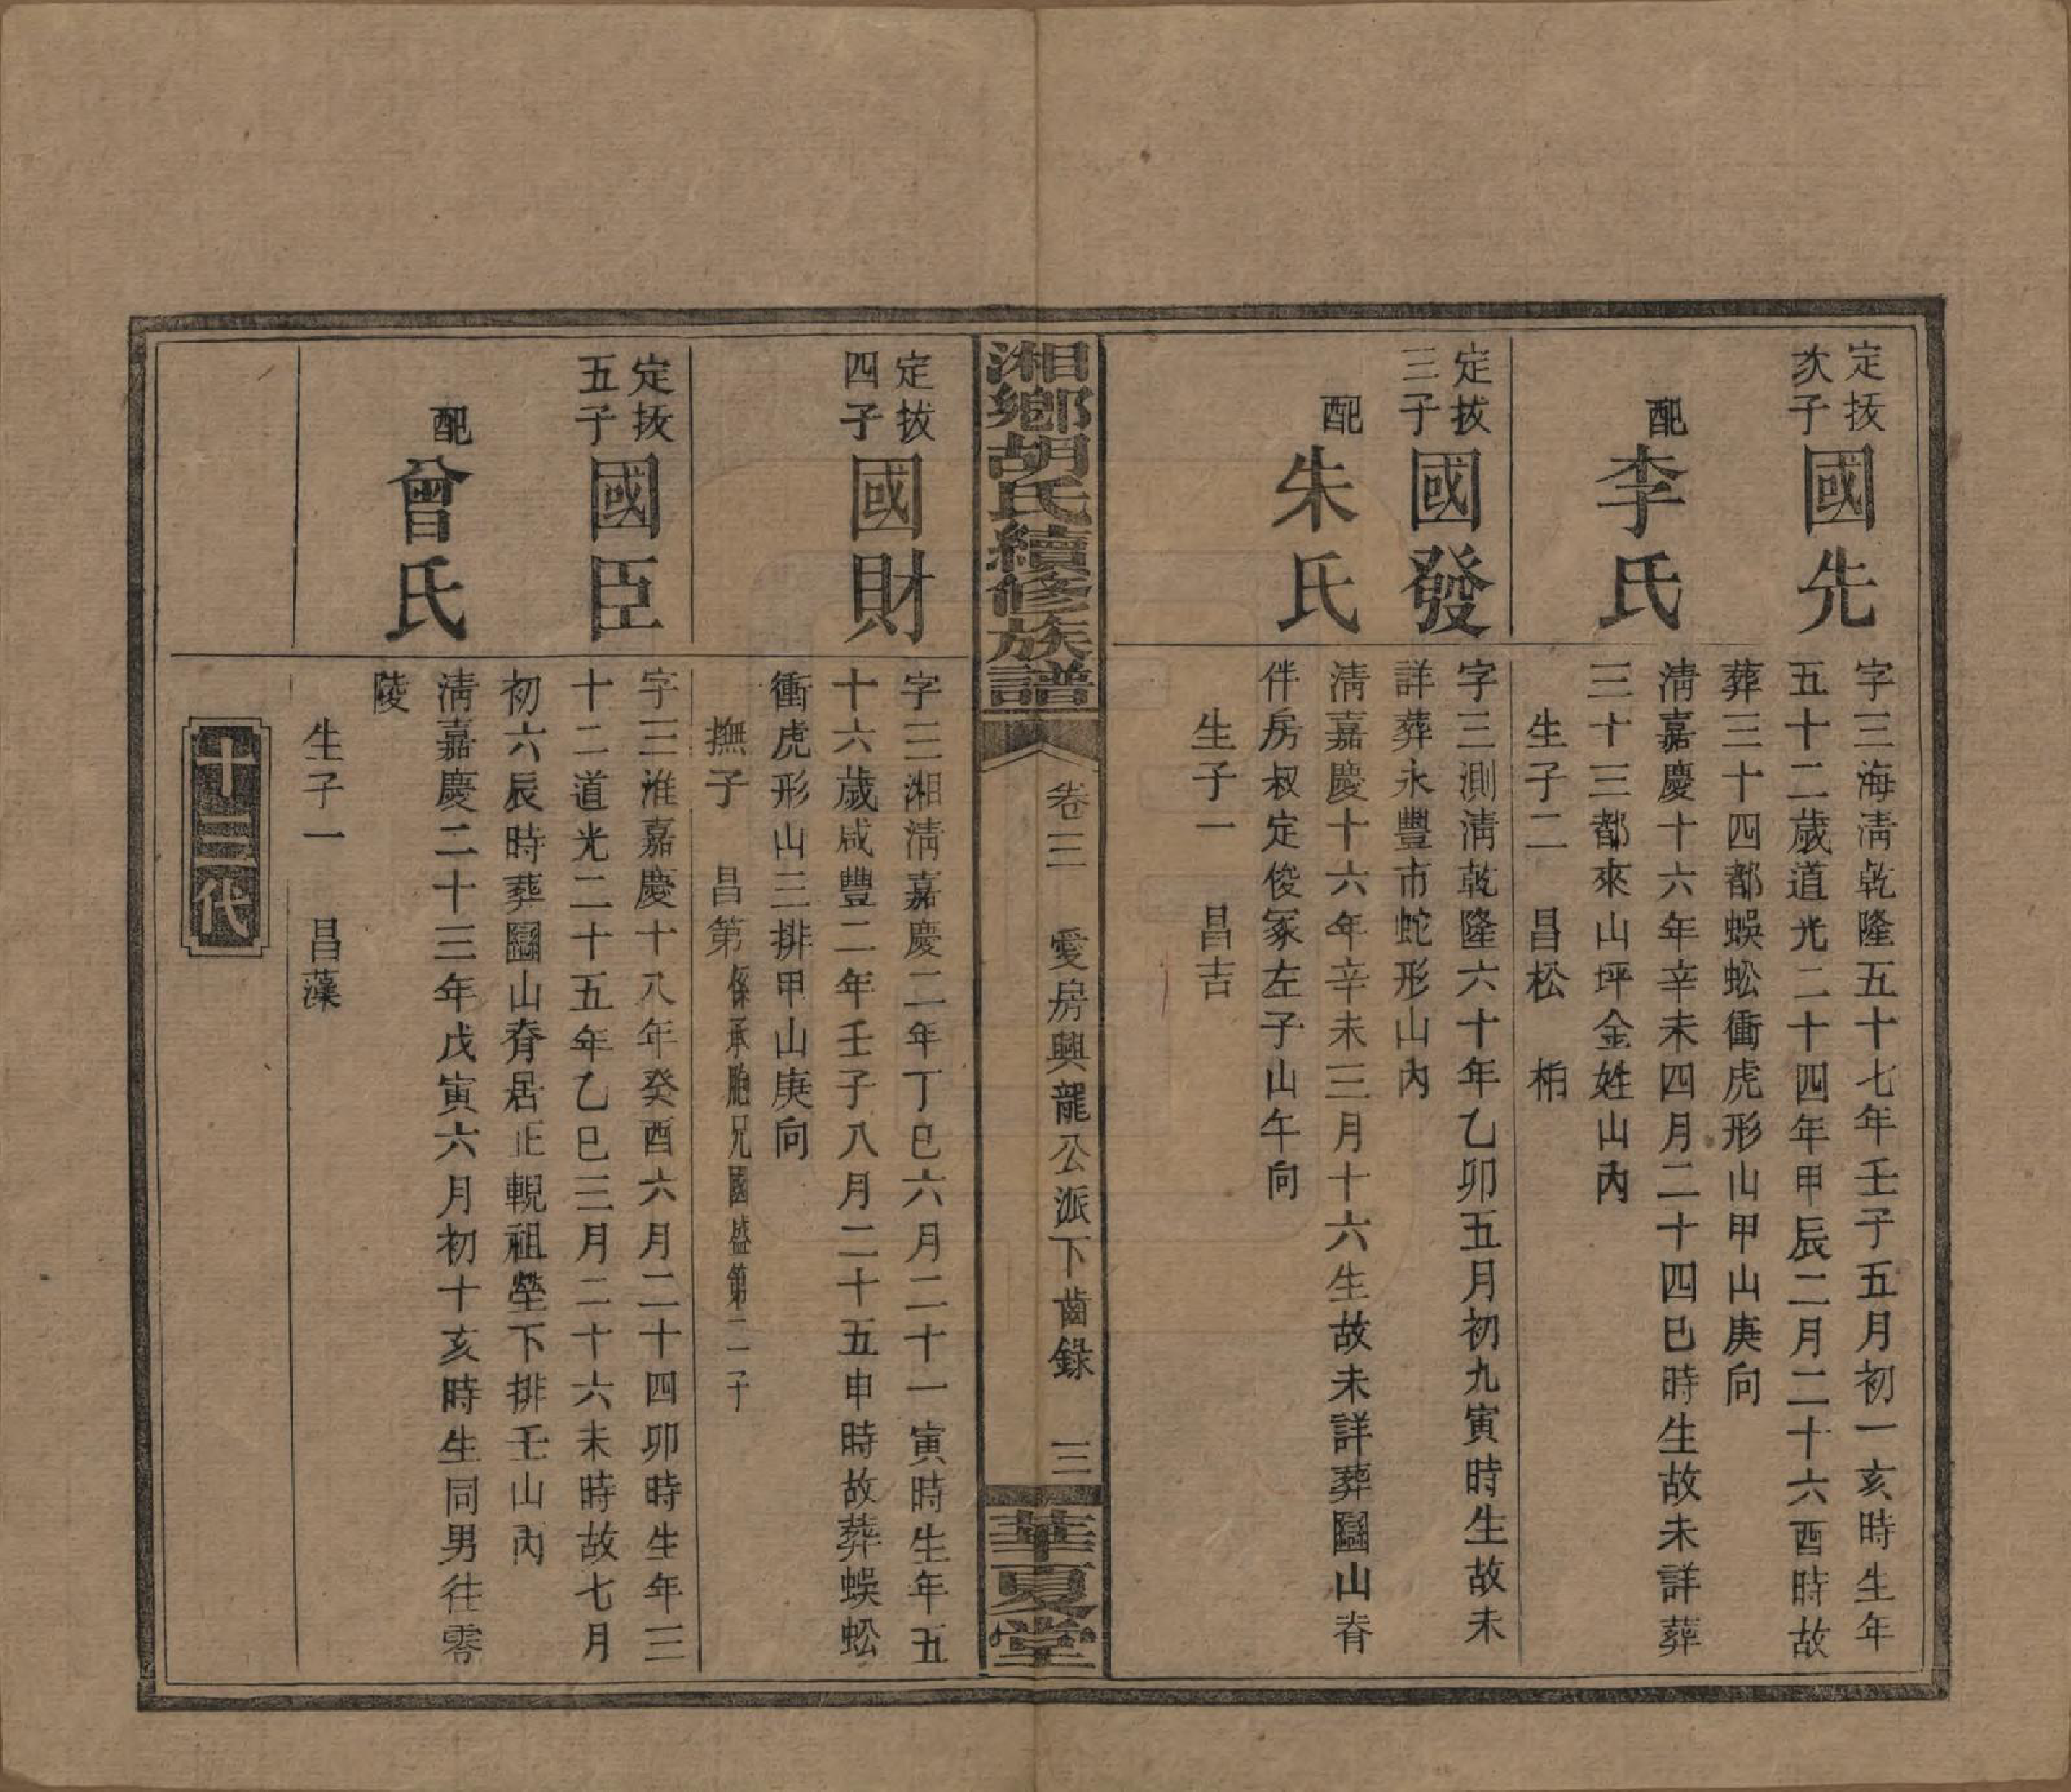 定拔
次子
國先
字三海淸乾隆五十七年壬子五月初一亥時生年
五十二歲道光二十四年甲辰二月二十六酉時故
葬三十四都蜈蚣衝虎形山甲山庚向
配
李氏
淸嘉慶十六年辛未四月二十四巳時生故未詳葬
三十三都來山坪金姓山內
生子二　昌松　柏
定拔
三子
國發
字三測淸乾隆六十年乙卯五月初九寅時生故未
詳葬永豐市蛇形山內
配
朱氏
淸嘉慶十六年辛未三月十六生故未詳葬圝山脊
伴房叔定俊冢左子山午向
生子一　昌吉
湘鄉胡氏續修族譜
卷三　愛房興龍公派下齒錄　三
華夏堂
定拔
四子
國財
字三湘淸嘉慶二年丁巳六月二十一寅時生年五
十六歲咸豐二年壬子八月二十五申時故葬蜈蚣
衝虎形山三排甲山庚向
撫子　昌第係承胞兄國盛第二子
定拔
五子
國臣
字三淮嘉慶十八年癸酉六月二十四卯時生年三
十二道光二十五年乙巳三月二十六未時故七月
初六辰時葬圝山脊居正輗祖塋下排壬山內
配
曾氏
淸嘉慶二十三年戊寅六月初十亥時生同男往零
陵
生子一　昌藻
十三代